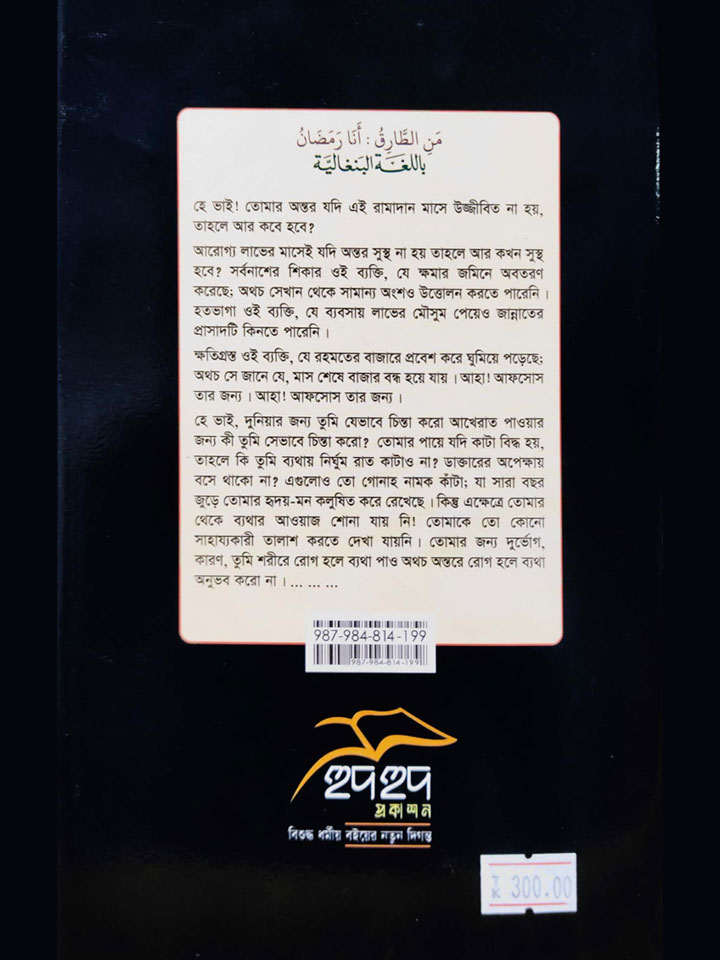 مَنِ الطَّارِقُ : أَنَا رَمَضَانُ
باللغة البنغالية
হে ভাই! তোমার অন্তর যদি এই রামাদান মাসে উজ্জীবিত না হয়,
তাহলে আর কবে হবে?
আরোগ্য লাভের মাসেই যদি অন্তর সুস্থ না হয় তাহলে আর কখন সুস্থ
হবে? সর্বনাশের শিকার ওই ব্যক্তি, যে ক্ষমার জমিনে অবতরণ
করেছে; অথচ সেখান থেকে সামান্য অংশও উত্তোলন করতে পারেনি।
হতভাগা ওই ব্যক্তি, যে ব্যবসায় লাভের মৌসুম পেয়েও জান্নাতের
প্রাসাদটি কিনতে পারেনি।
ক্ষতিগ্রস্ত ওই ব্যক্তি, যে রহমতের বাজারে প্রবেশ করে ঘুমিয়ে পড়েছে;
অথচ সে জানে যে, মাস শেষে বাজার বন্ধ হয়ে যায়। আহা! আফসোস
তার জন্য। আহা! আফসোস তার জন্য।
হে ভাই, দুনিয়ার জন্য তুমি যেভাবে চিন্তা করো আখেরাত পাওয়ার
জন্য কী তুমি সেভাবে চিন্তা করো? তোমার পায়ে যদি কাটা বিদ্ধ হয়,
তাহলে কি তুমি ব্যথায় নির্ঘুম রাত কাটাও না? ডাক্তারের অপেক্ষায়
বসে থাকো না? এগুলোও তো গোনাহ নামক কাঁটা; যা সারা বছর
জুড়ে তোমার হৃদয়-মন কলুষিত করে রেখেছে। কিন্তু এক্ষেত্রে তোমার
থেকে ব্যথার আওয়াজ শোনা যায় নি! তোমাকে তো কোনো
সাহায্যকারী তালাশ করতে দেখা যায়নি। তোমার জন্য দুর্ভোগ,
কারণ, তুমি শরীরে রোগ হলে ব্যথা পাও অথচ অন্তরে রোগ হলে ব্যথা
অনুভব করো না। ... ... ...
987-984-814-199
987-984-814-199
হুদহুদ
প্রকাশন
বিশুদ্ধ ধর্মীয় বইয়ের নতুন দিগন্ত
TK 300.00